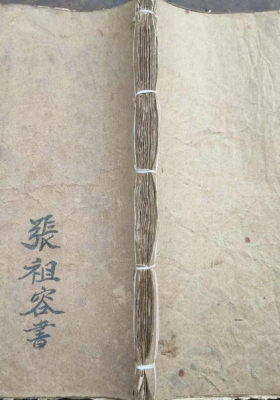 張祖容書